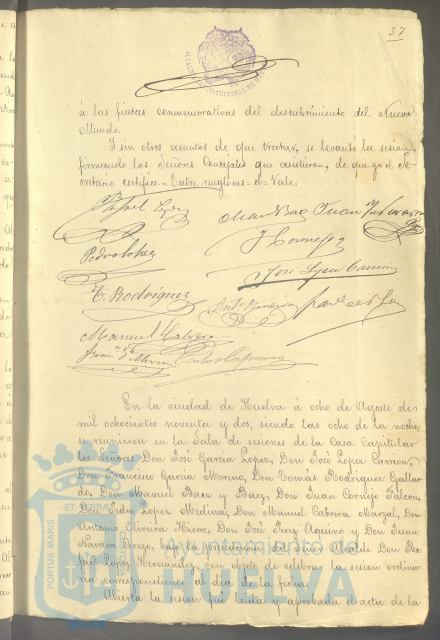 37
á las fiestas conmemorativas del descubrimiento del Nuevo
Mundo.
Y sin otros asuntos de que tratar, se levantó la sesión,
firmando los Señores Concejales que asistieron, de que yo el Se-
cretario certifico.= Entre renglones= el= Vale.
Rafael López
Juan Navarro
Pedro López
J Cornejo
José López Carrion
T. Rodríguez
Manuel Cabrera
En la ciudad de Huelva á ocho de Agosto de
mil ochocientos noventa y dos, siendo las ocho de la noche,
se reunieron en la Sala de sesiones de la Casa Capitular
los Señores Don José García López, Don José López Carrion,
Don Francisco García Moreno, Don Tomás Rodríguez Gallar-
do, Don Manuel Baez y Baez, Don Juan Cornejo Falcon,
Don Pedro López Medina, Don Manuel Cabrera Marzal, Don
Antonio Oliveira Hierro, Don José Perez Aquino y Don Juan
Navarro Cerezo, bajo la presidencia del Señor Alcalde Don Ra-
fael López Hernandez, con objeto de celebrar la sesion ordina-
ria correspondiente al dia de la fecha.
Abierta la sesion fué leida y aprobada el acta de la
PORTUS MARIS
ET TERRAE
CUSTODIA
Ayuntamiento de
HUELVA